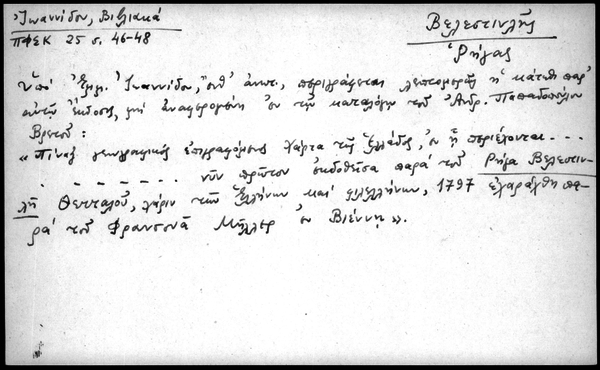 Ἰωαννίδου, Βιβλιακά
ΠΦΕΚ 25 σ. 46-48
Βελεστινλῆς
Ῥήγας
Ὑπό Ἐμμ. Ἰωαννίδου, ἔνθ' ἀνωτ., περιγράφεται λεπτομερῶς ἡ κάτωθι παρ'
αὐτῷ ἔκδοσις, μή ἀναφερομένη ἐν τῷ καταλόγῳ τοῦ Ἀνδρ. Παπαδοπούλου
Βρετοῦ:
« Πίναξ γεωγραφικός ἐπιγραφόμενος Χάρτα τῆς Ἑλλάδος, ἐν ᾗ περιέχονται - - - -
- - - - - - νῦν πρῶτον ἐκδοθεῖσα παρά τοῦ Ρήγα Βελεστιν-
λῆ Θετταλοῦ, χάριν τῶν Ἑλλήνων καί φιλελλήνων, 1797 ἐχαράχθη πα-
ρά τοῦ Φρανσουά Μήλλερ ἐν Βιέννῃ ».